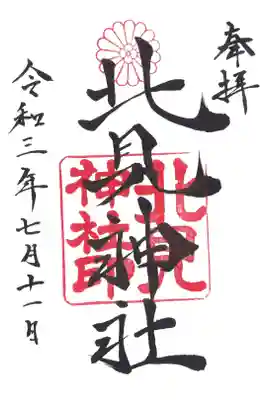 奉拝
北見神社
北見
神社
令和三年七月十一日